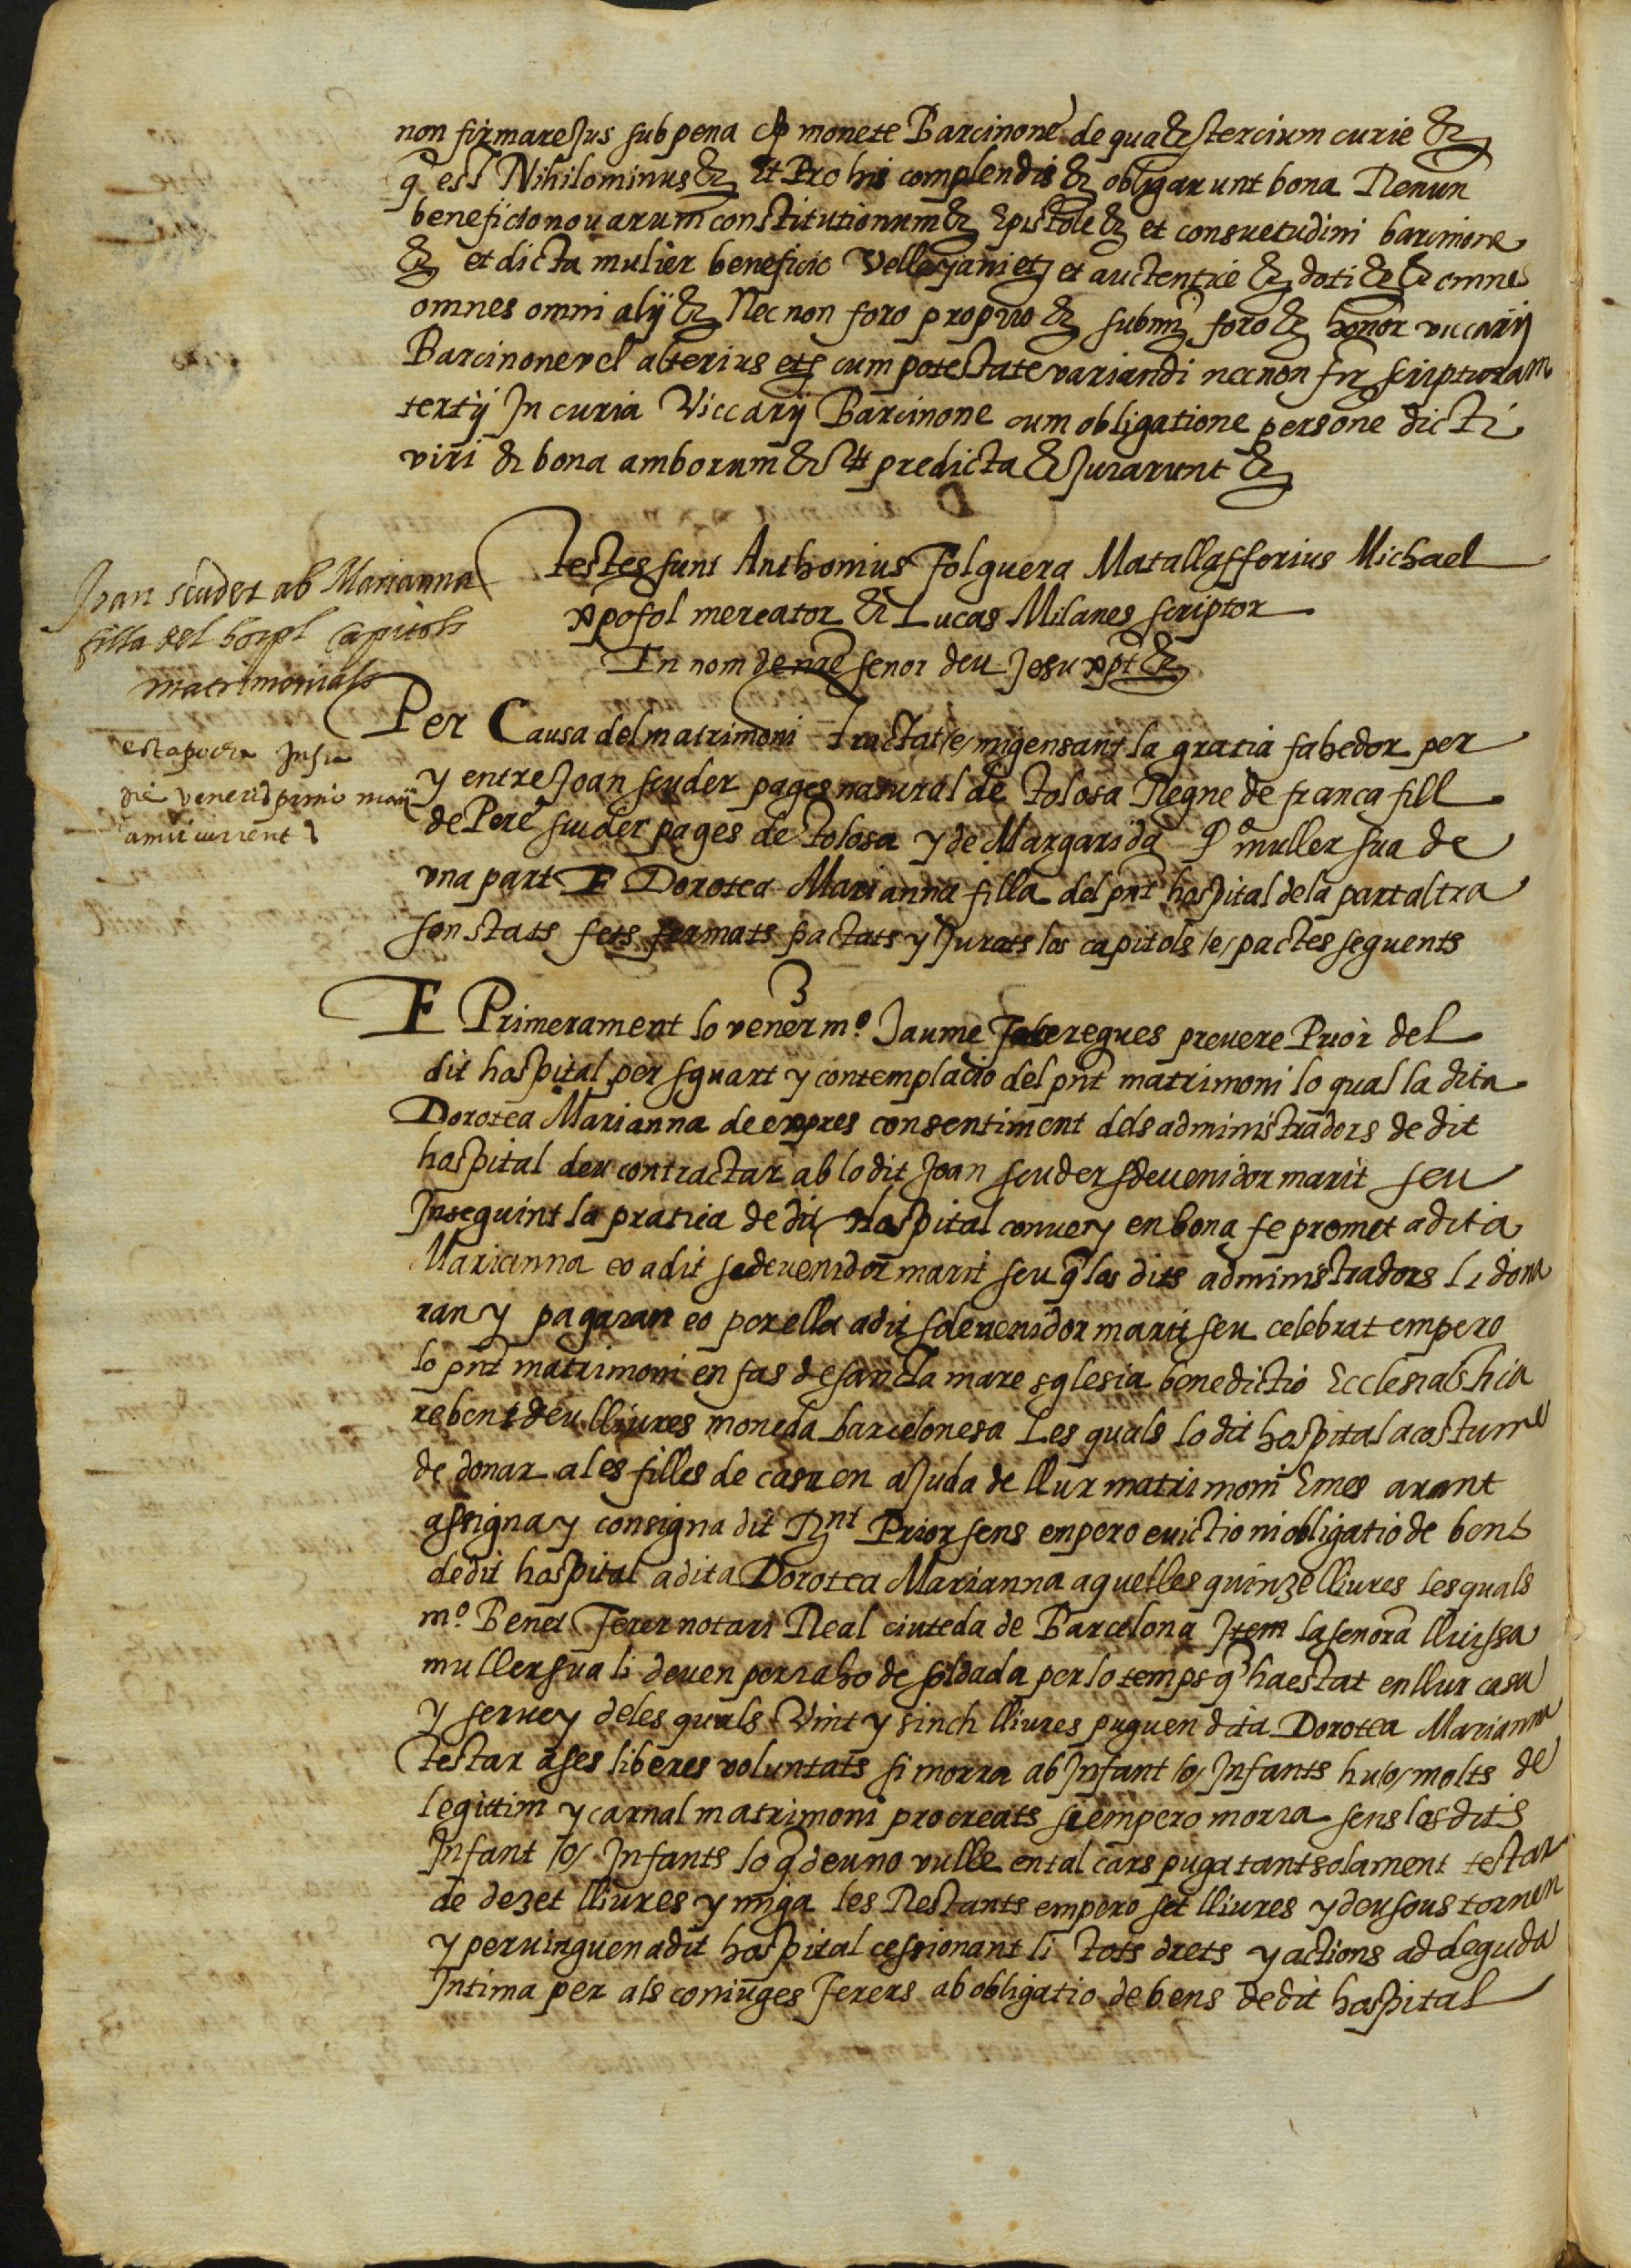 non firmare Jus sub pena monete Barcinone de qua &c stercium curie &c
q est Nihilominus &c Et Pro his complendis &c obligarunt bona Renun
beneficio novarum constitutionum &c Epistole &c et consuetudini barcinone
&c et dicta mulier beneficio Velleyani etz et auctentice &c doti &c &c omne
omnes omni alij &c Nec non foro proprio &c submi foro &c honor viccarij
Barcinone vel alterius etz cum potestate variandi nec non fir scripturam
tertij In curia Viccarij Barcinone cum obligatione persone dicti
viri & bona amborum &c Ut predicta &c Jurarunt &c
Testes sunt Anthonius Folguera Matallafferius Michael
xpofol mercator & Lucas Milanes scriptor
En nom de nre senor deu Jesu xpt &c
Joan scuder ab Marianna
filla del hospl capitols
matrimonials
est apocha Infra
die veneris primi maij
anni current
Per Causa del matrimoni tractat /e/ migensant la gratia fahedor per
y entre Joan scuder pages natural de Tolosa Regne de franca fill
de Pere scuder pages de Tolosa y de Margarida qº muller sua de
vna part E Dorotea Marianna filla del pnt hospital de la part altra
son stats fets fermats pactats y Jurats los capitols /e/ pactes seguents
E Primerament lo vener mº Jaume Fabregues prevere Prior del
dit hospital per sguart y contemplacio del pnt matrimoni lo qual la dita
Dorotea Marianna de expres consentiment dels administradors de dit
hospital deu contractar ab lo dit Joan scuder sdevenidor marit seu
Inseguint la pratica de dit Hospital conve y en bona fe promet a dita
Marianna eo a dit sdevenidor marit seu q los dits administradors li dona
ran y pagaran eo per ella a dit sdevenidor marit seu celebrat empero
lo pnt matrimoni en fas de sancta mare sglesia benedictio Ecclesiastica
rebent deu lliures moneda barcelonesa Les quals lo dit hospital acostume
de donar a les filles de casa en ajuda de llur matrimoni E mes avant
assigna y consigna dit Rnt Prior sens empero evictio ni obligatio de bens
de dit hospital a dita Dorotea Marianna aquelles quinze lliures les quals
mº Benet Ferer notari Real ciuteda de Barcelona Item la senora lluissa
muller sua li deven per raho de soldada per lo temps q ha estat en llur casa
y servey de les quals Vint y sinch lliures puguen dita Dorotea Marianna
testar a ses liberes voluntats si morra ab Infant /o/ Infants hu /o/ molts de
legittim y carnal matrimoni procreats si empero morra sens los dits
Infant /o/ Infants lo q deu no vulle en tal cars puga tant solament testar
de dezet lliures y miga les Restants empero set lliures y deu sous tornen
y pervinguen a dit hospital cessionant li tots drets y actions ad deguda
Intima per als coniuges Ferers ab obligatio de bens de dit hospital